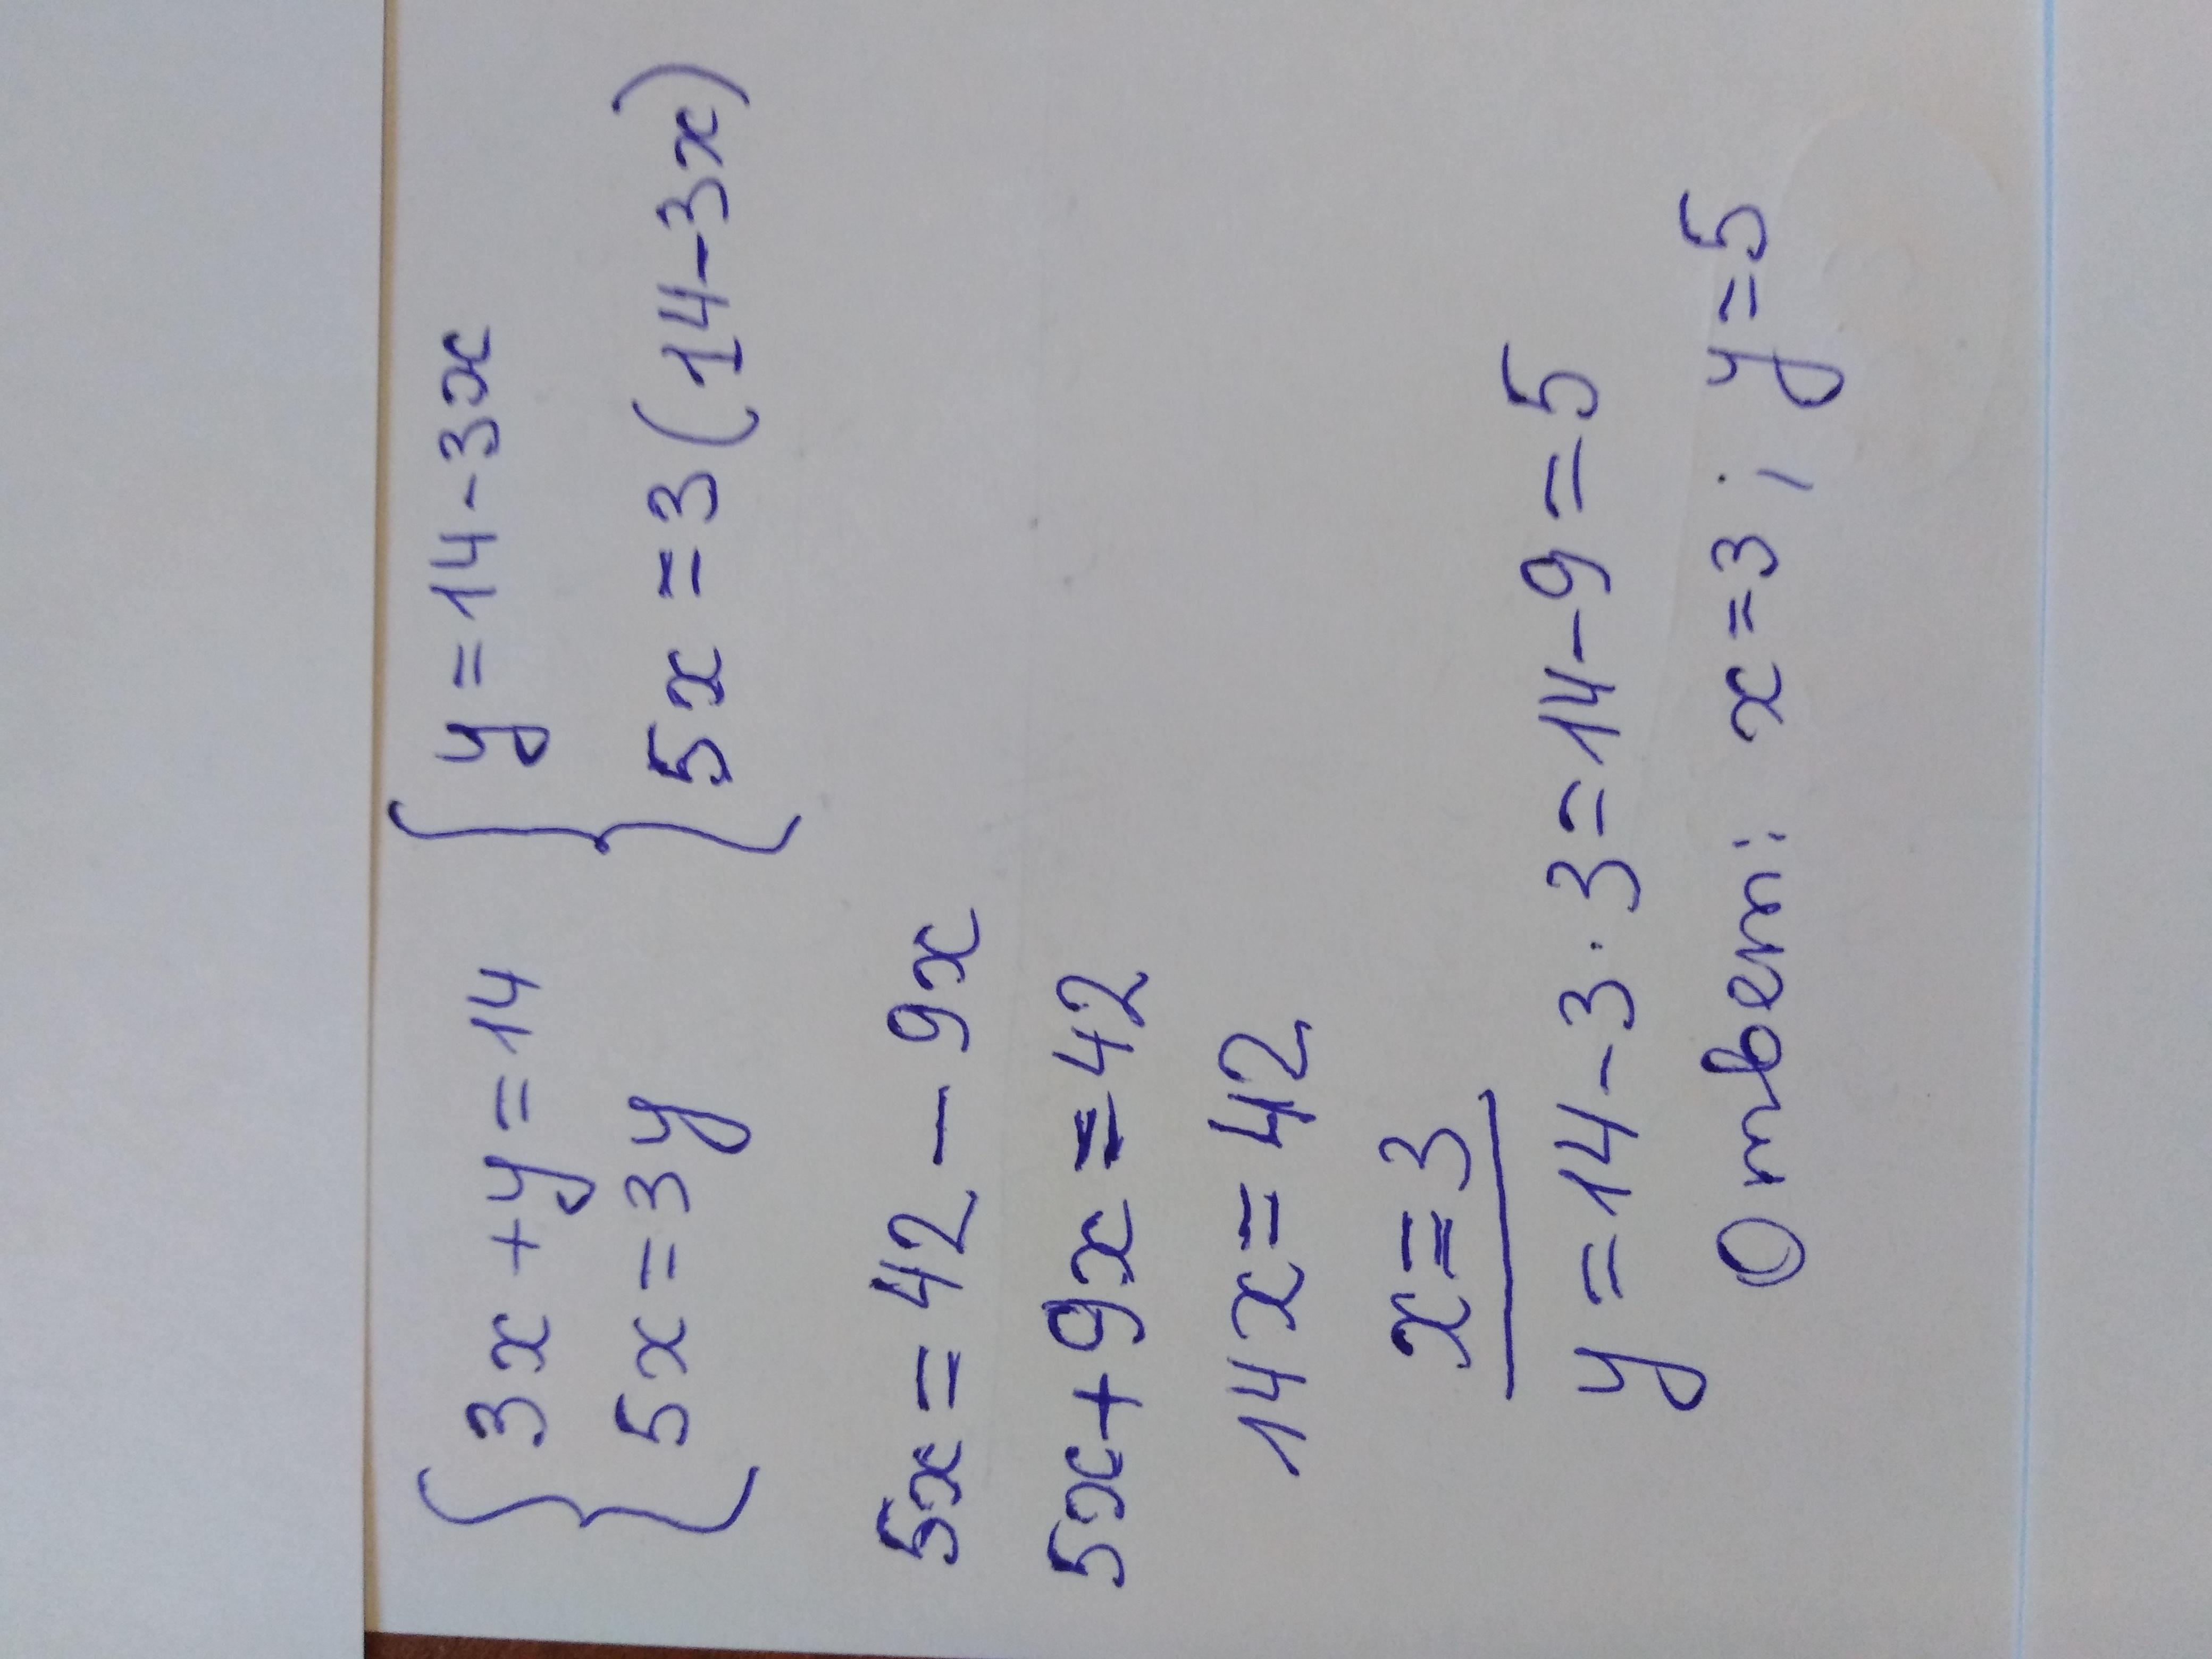 { 3x + y = 14 { y = 14 - 3x
5x = 3y 5x = 3(14 - 3x)
5x = 42 - 9x
5x + 9x = 42
14x = 42
x = 3
y = 14 - 3 · 3 = 14 - 9 = 5
Ответ: x = 3; y = 5